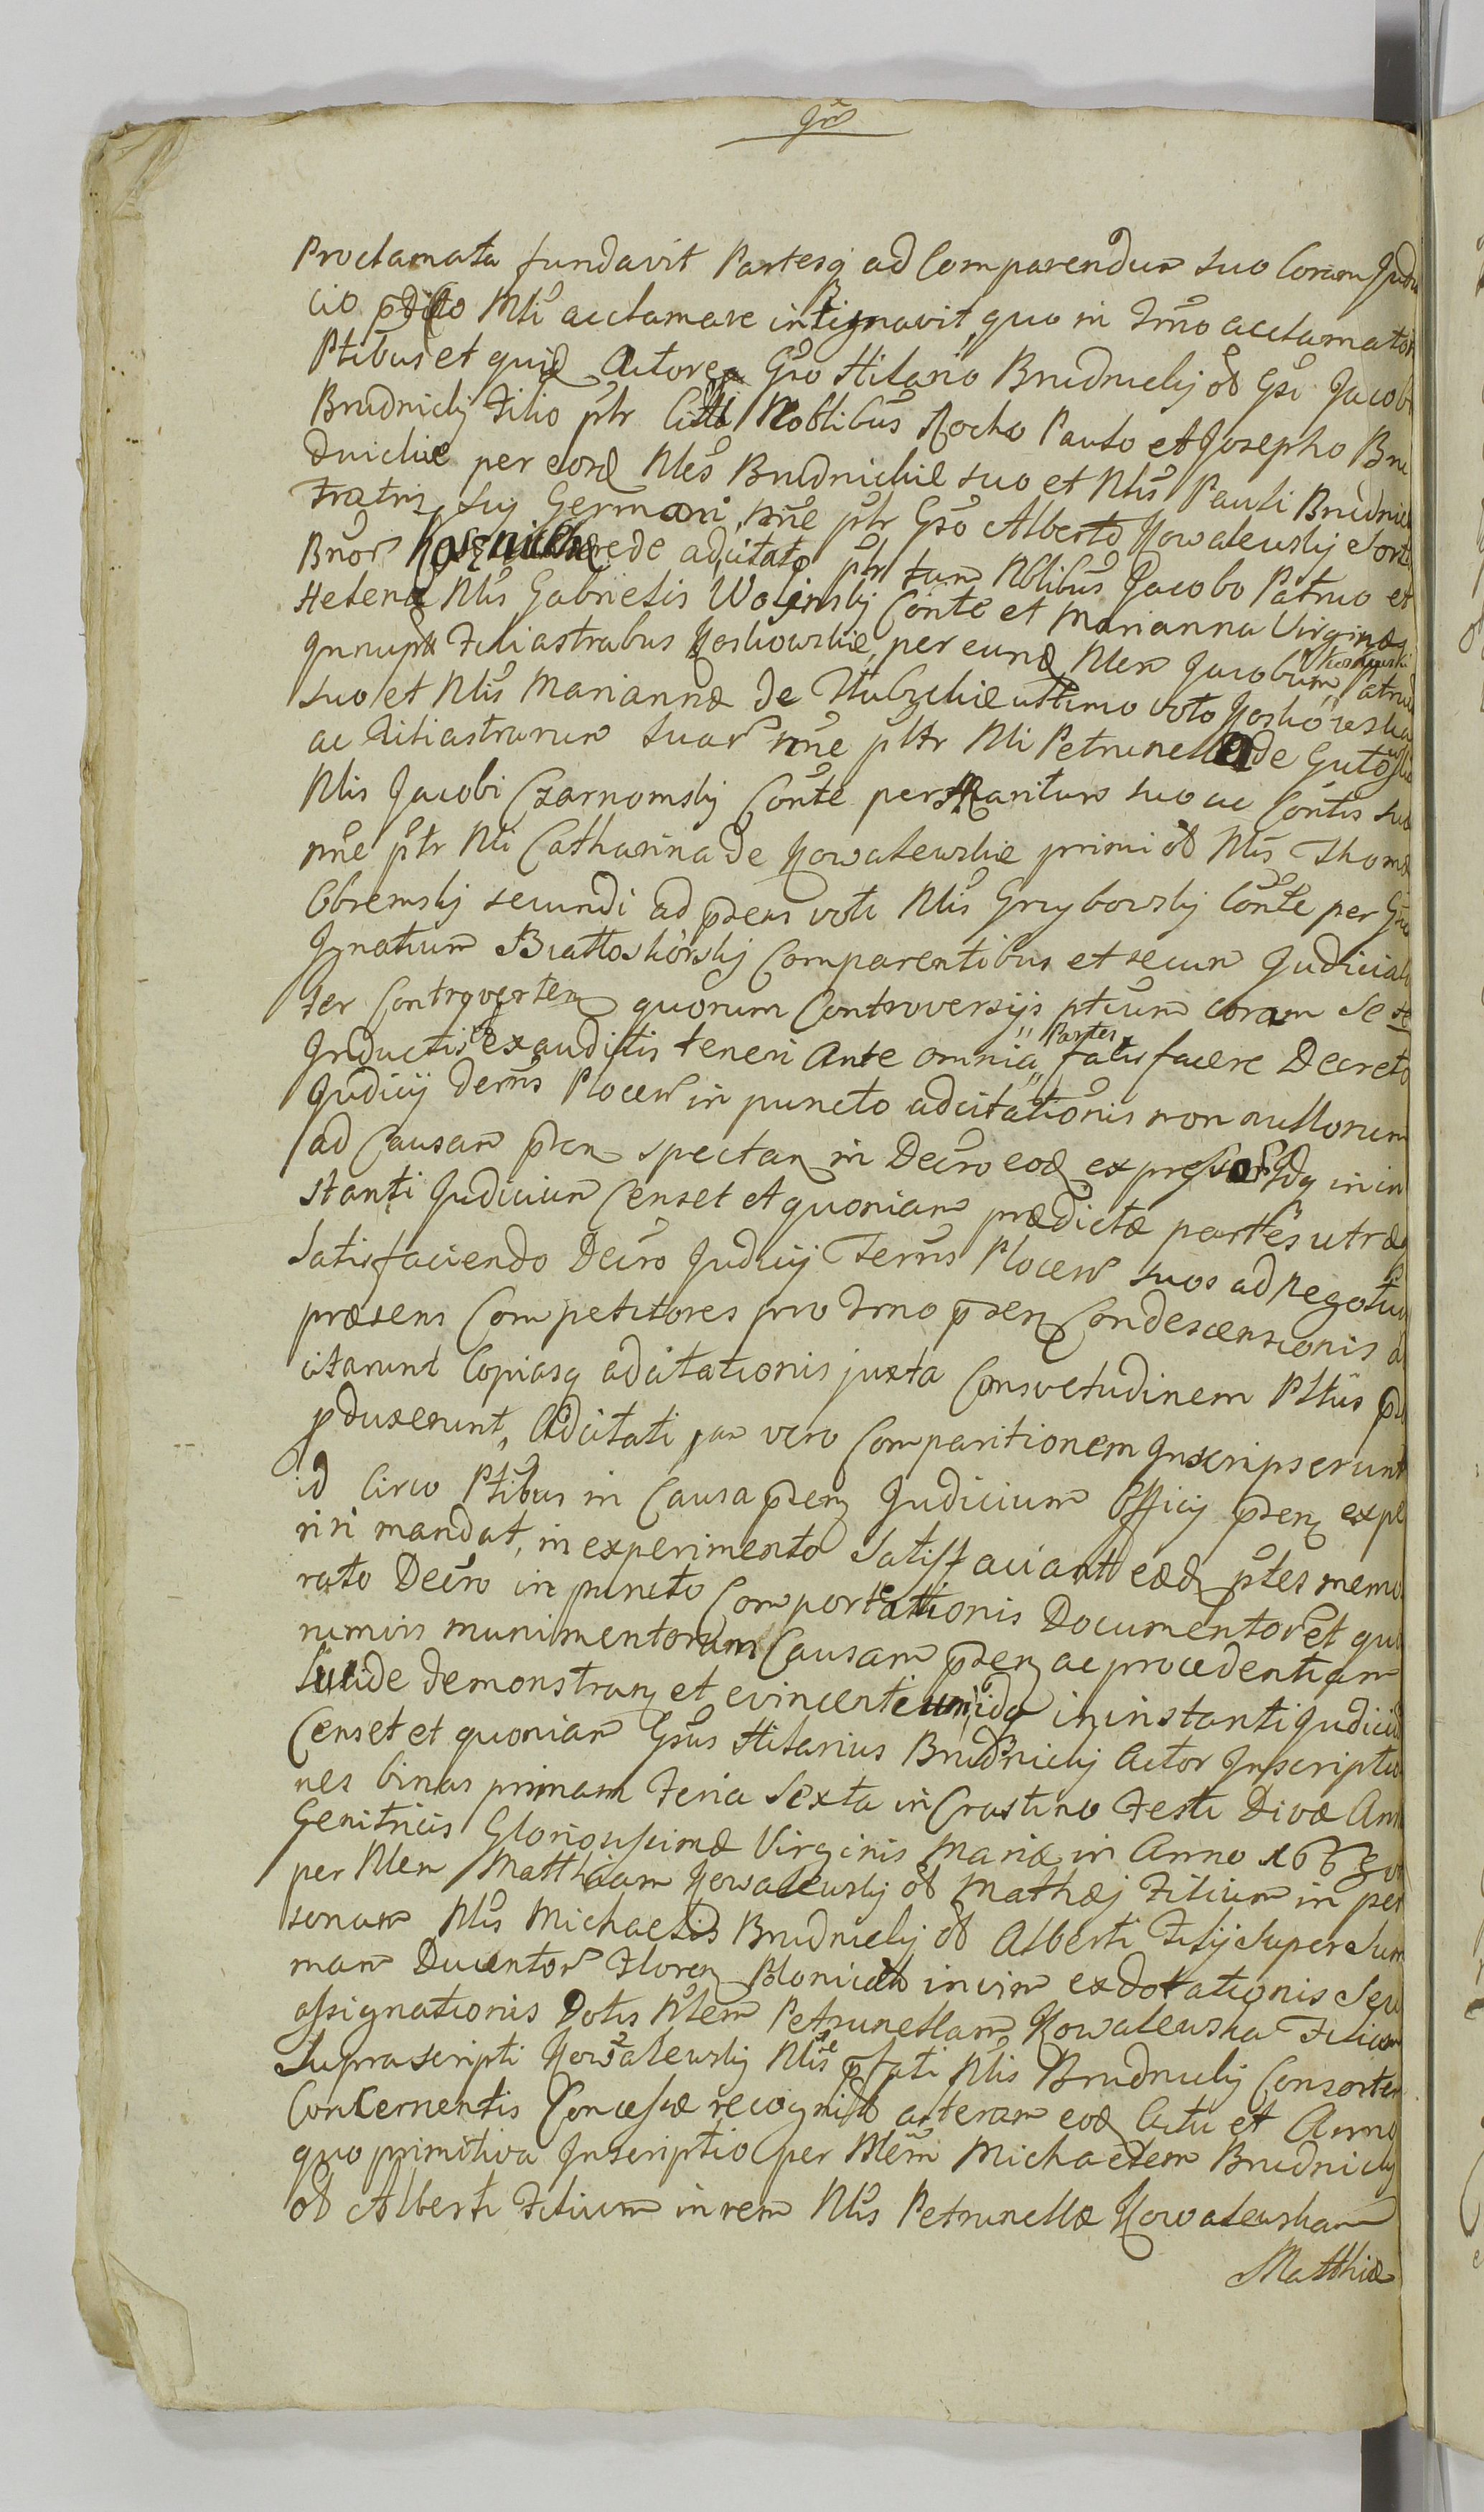 Proclamata fundavit Partesq ad Comparendum suo Coram Judi
cio pdicto Nli acclamare insignavit, quo in Trno acclamator
Ptibus et quid Actorea Gso Hilario Brudnickij ol Gsi Jacobi
Brudnickij Filio ptr Citti Noblibus Rocho Paulo et Josepho Bru
dnickie per eosd Nles Brudnickie suo et Nlis Pauli Brudnick
Fratris sui Germani nne ptr Gso Alberto Kowalewskij Sort
Bnor hærede adcitato ptr tum Nblibus Jacobo Patruo et
Helena Nlis Gabrielis Wolinskij Conte et Marianna Virgine
Innupta Filiastrabus Koskowskie, per eund Nlem Jacobum Koskowski Patruu
suo et Nlis Mariannæ de ultimo voto Koskowska
ac Filiastrarum suar nne pltr Nli Petrunella de Gutowskie
Nlis Jacobi Czarnomskij Conte per Maritum suo ac Contis suæ
nne ptr Nli Catharina de Kowalewskie primi ol Nlis Thomæ
Obremskij secundi ad psens voti Nlis Grzybowskij Conte per Gnu
Ignatium Białłoskórskij Comparentibus et secum Judiciali
ter Controverten quorum Controversijs ptium coram se
Inductis exauditis teneri Ante omnia Partes satisfacere Decreto
Judicij Terris Plocen in puncto adcitationis non nullorum
ad Causam psen spectan in Decro eod expressor Idq in in
stanti Judicium Censet et quoniam prædictæ partes utræq
Satisfaciendo Decro Judicij Terris Plocen suos ad Negotiu
præsens Competitores pro Trno psen Condescensionis ad
citarunt Copiasq adcitationis juxta Consvetudinem Pltiis
pduxerunt, Adcitati jam vero Comparitionem Inscripserunt
id Circo Ptibus in Causa psen Judicium Officij psen expe
riri mandat, in experimento Satisfaciant eæd ptes memo
rato Decro in puncto Comportationis Documentor et quo
rumvis munimentorum Causam psen ac procedentiam
Lucide demonstran et evincent idq in instanti Judiciu
Censet et quoniam Gsus Hilarius Brudnickij Actor Inscriptio
nes binas primam Feria Sexta in Crastino Festi Divæ Ann
Genitricis Gloriosissimæ Virginis Mariæ in Anno
per Nlem Matthiam Kowalewskij ol Mathæj Filium in per
sonam Nlis Michaelis Brudnickij ol Alberti Filij Super Sum
mam Ducentor Floren Polonicali in vim exdotationis Seu
assignationis Dotis Nlem Petrunellam Kowalewska Filiam
Suprascripti Kowalewskij Nlis pfati Nlis Brudnickij Consortem
Concernentis Concessæ recognit alteram eod Actu et Anno
quo primitiva Inscriptio per Nlem Michaelem Brudnickij
ol Alberti Filium in rem Nlis Petrunellæ Kowalewskam
Matthiæ